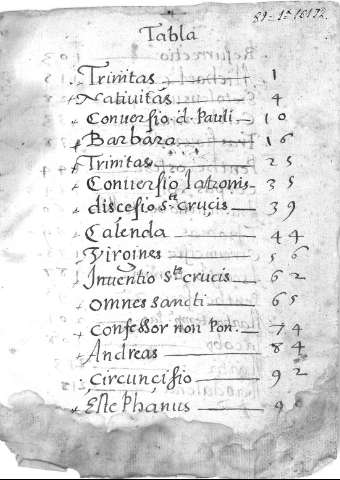 Tabla
Trinitas 1
Nativitas 4
Conversio d. Pauli 10
Barbara 16
Trinitas 25
Conversio latronis 35
discesio Ste crucis 39
Calenda 44
56
Inventio Ste crucis 62
omnes sancti 65
Confessor non Pon. 74
Andreas 84
Circuncisio 92
Estephanus